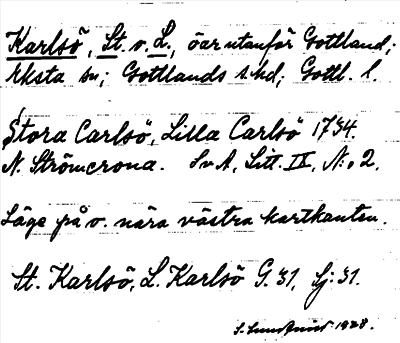 Karlsö, St. o. L., öar utanför Gottland;
Eksta sn; Gottlands s. hd; Gottl. l.
Stora Carlsö, Lilla Carlsö 1734.
N. Strömcrona. SvA, Litt. IX, N:o 2.
Läge på v. nära västra kartkanten.
St. Karlsö, L. Karlsö G. 31, Sj: 31.
1928.